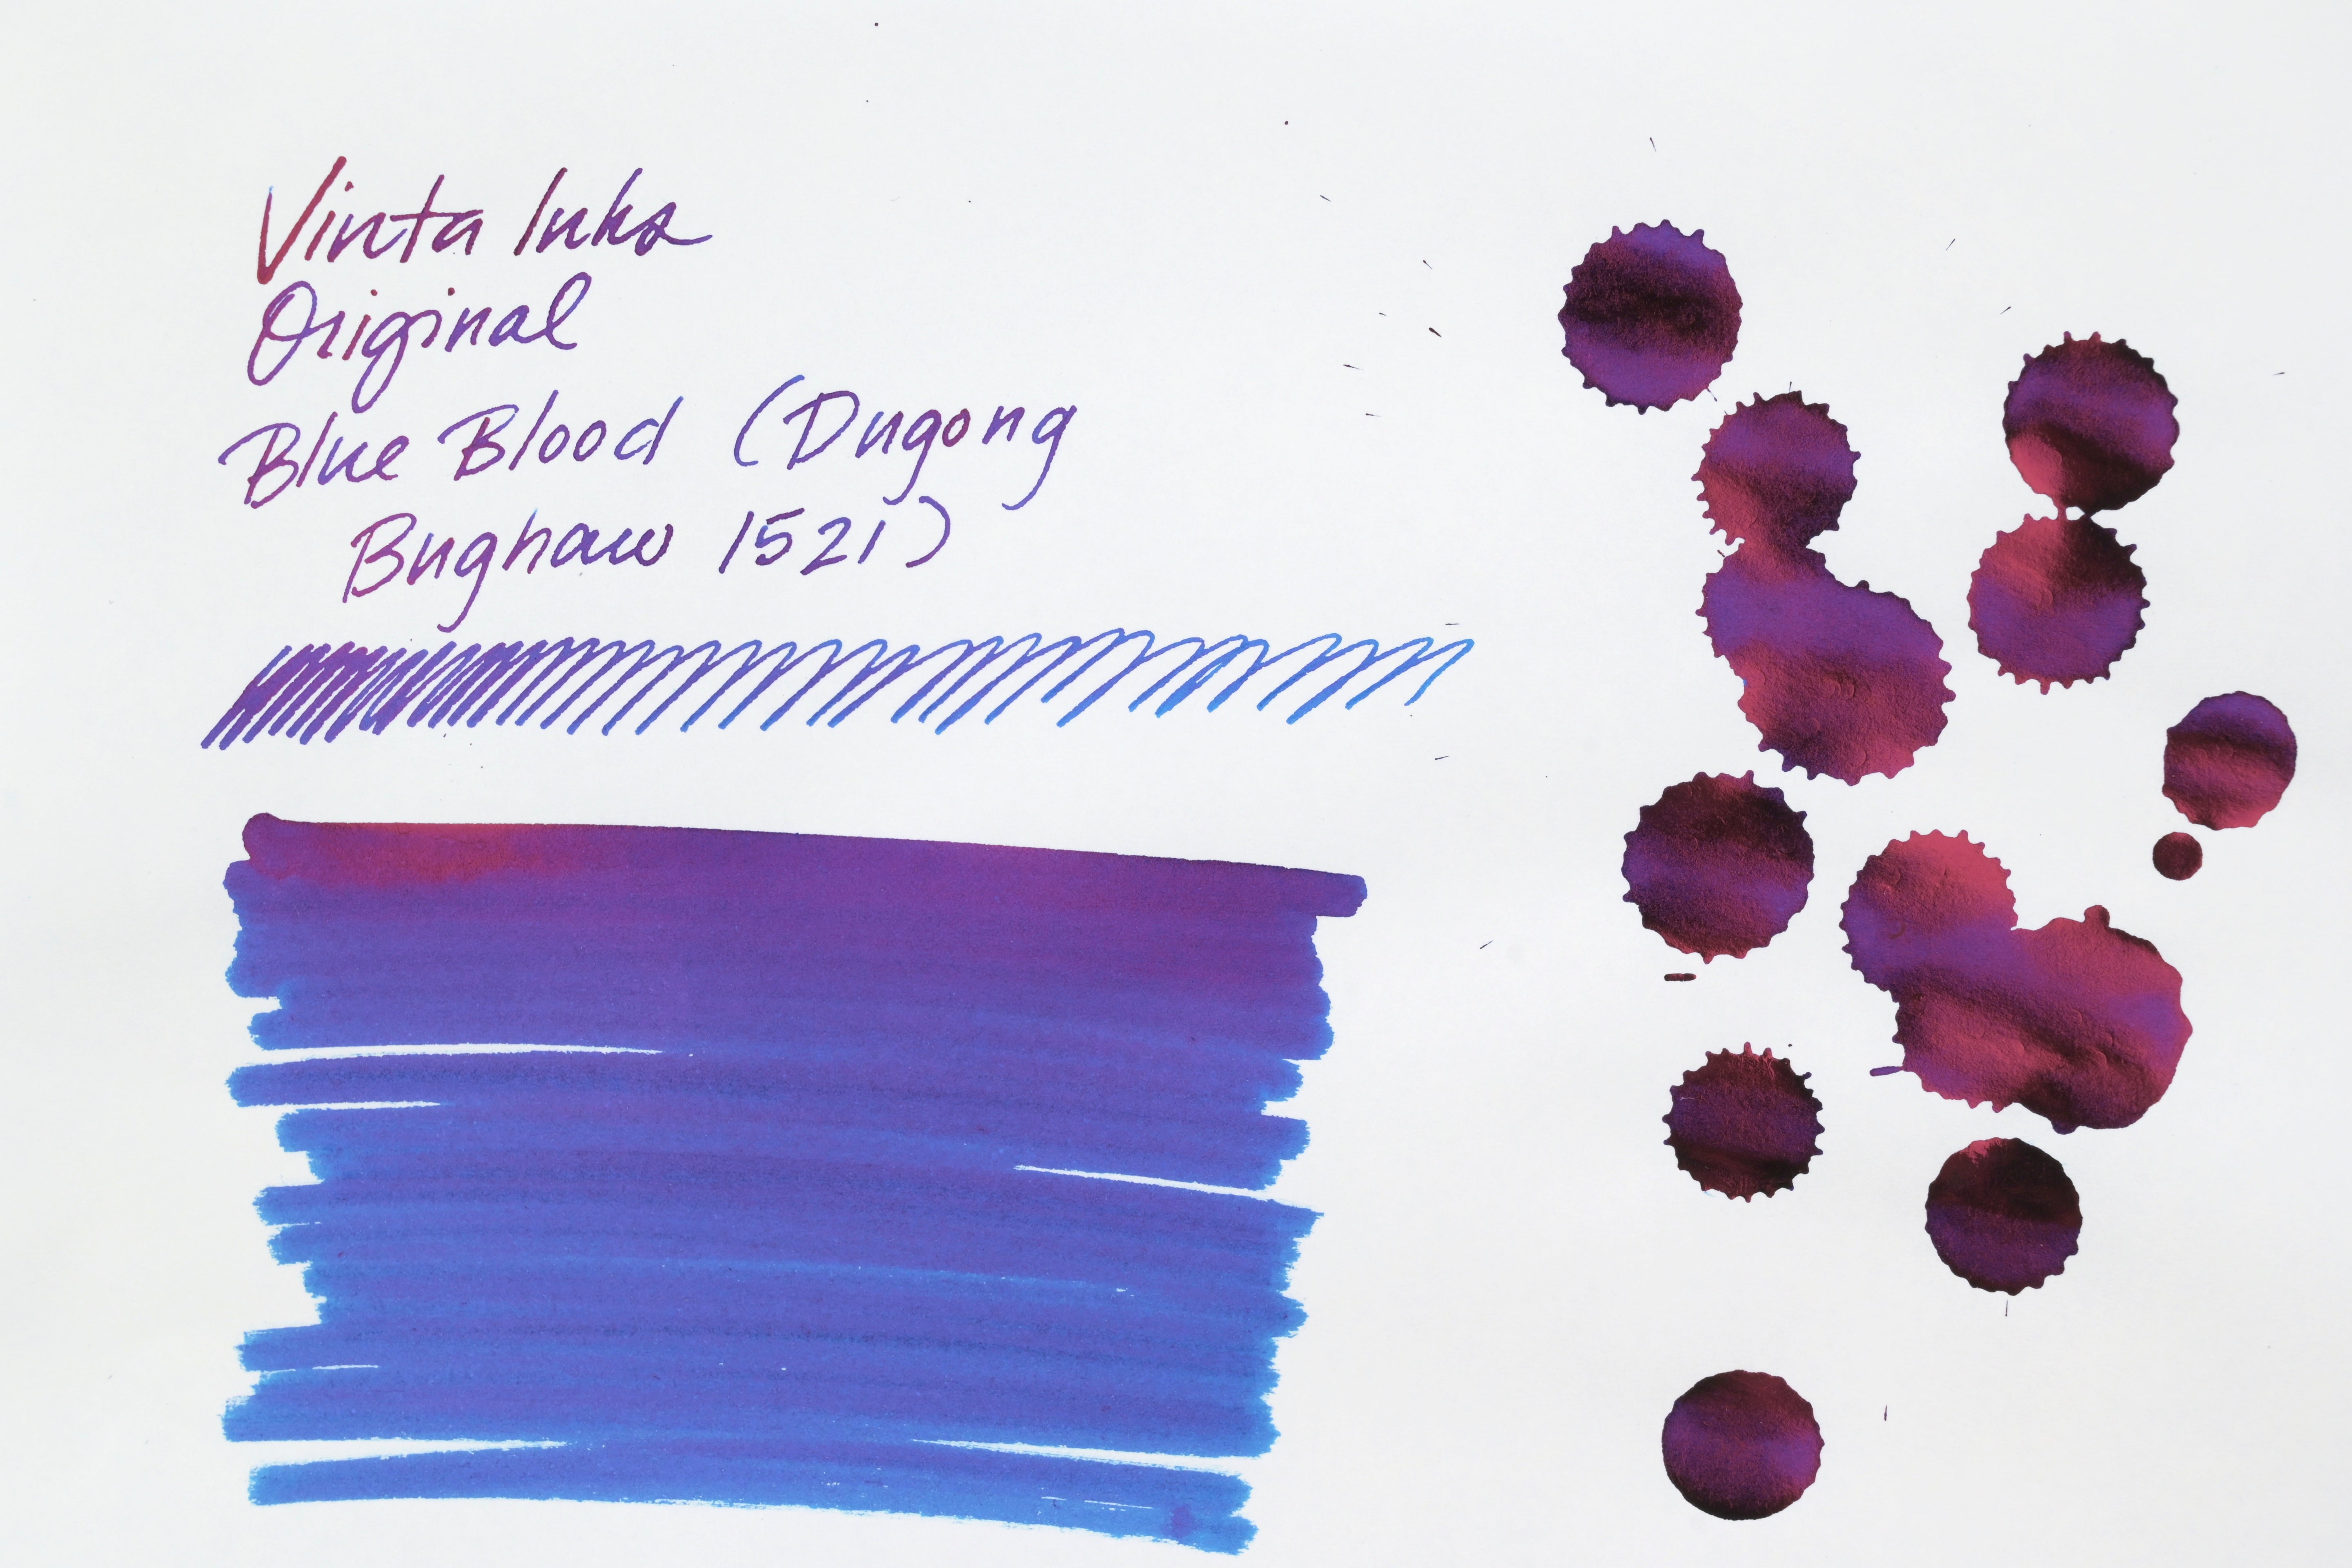 Vinta Inks
Original
Blue Blood (Dugong
Bughaw 1521)